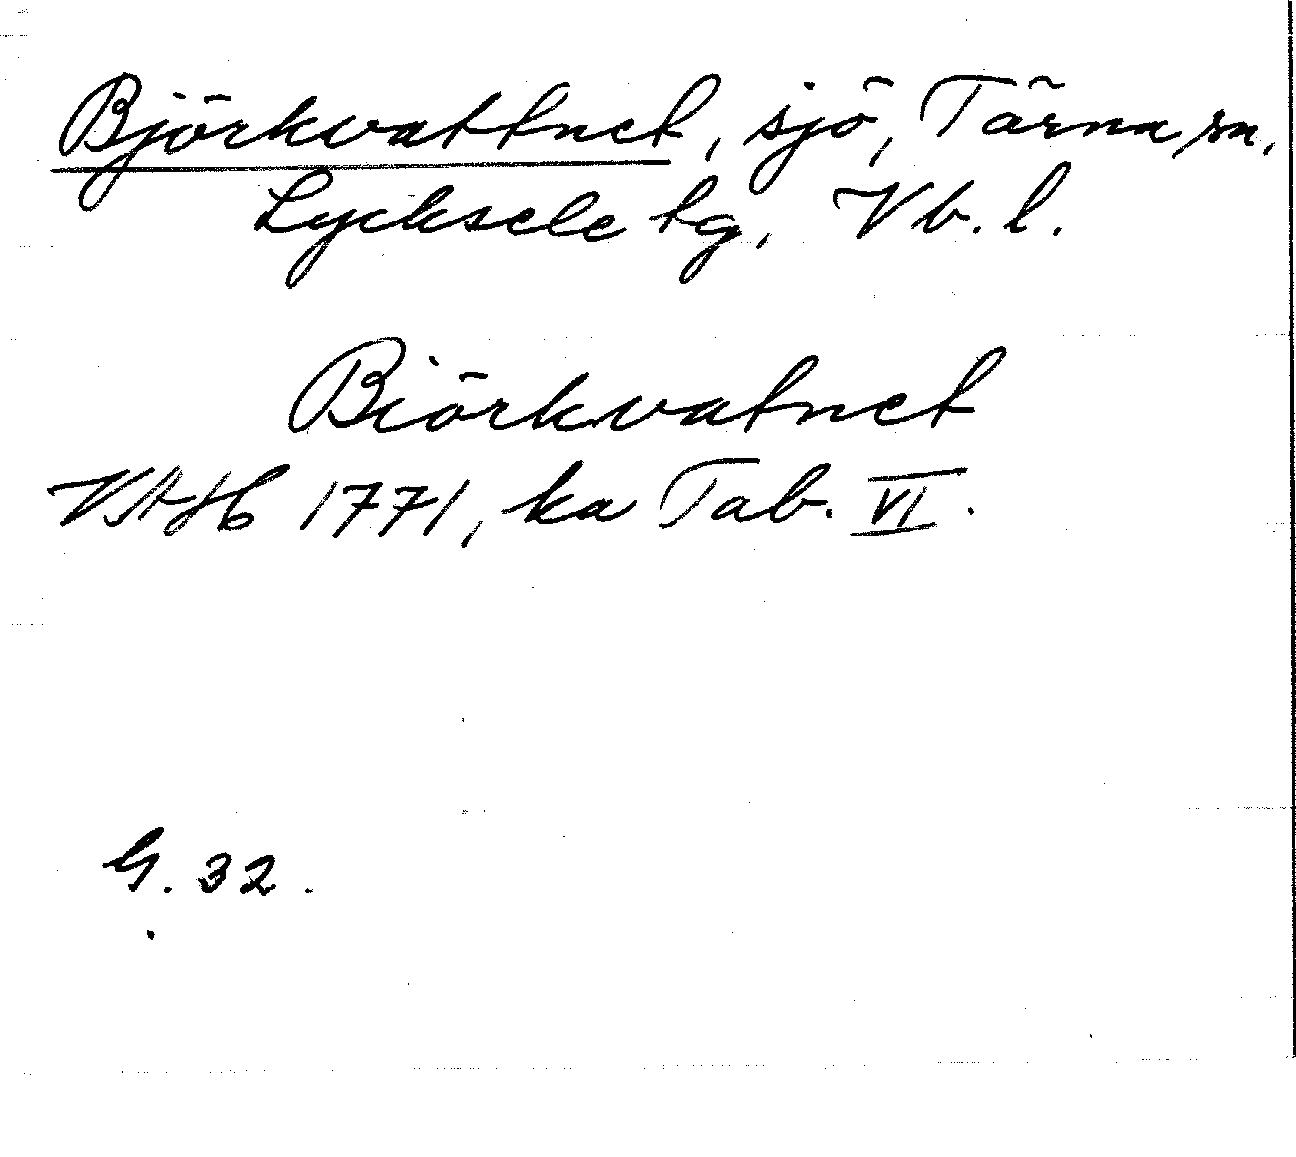 Björkvattnet, sjö, Tärna sn,
Lycksele lg, Vb. l.
Biörkvatnet
VAH 1771, ka Tab. VI.
G. 32.